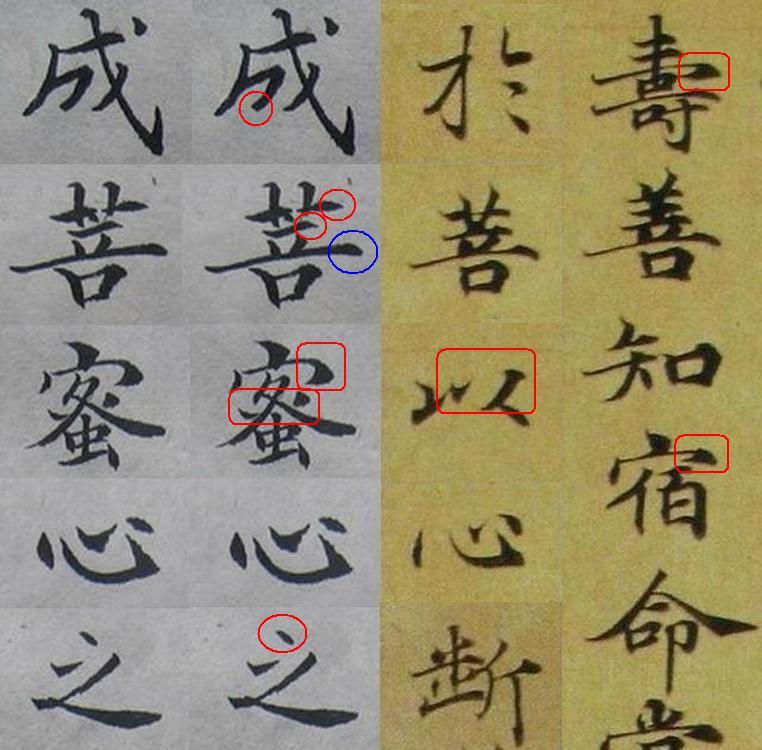 成菩蜜心之
成菩蜜心之
於菩以心断
壽善知宿命